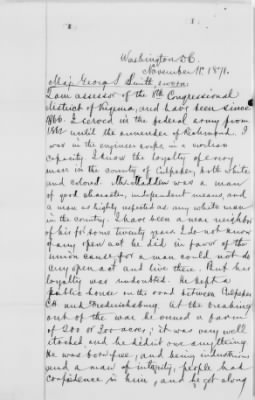 Washington D.C.
November 11. 1871.
Maj. George S. Smith, sworn.
I am assessor of the 8th Congressional
district of Virginia, and have been since
1866. I served in the federal army from
1862 until the surrender of Richmond. I
was in the engineer corps in a
capacity I know the loyalty of every
man in the county of Culpeper, both white
and colored. Mr. Madden was a man
of good character, independent means and
a man as highly respected as any white man
in the country. I have been a near neighbor
of his for some twenty years I do not know
of any open act he did in favor of the
union cause for a man could not do
any open act and live there. But his
loyalty was undoubted. He kept a
public house on the road between Culpeper
CH and Fredericksburg. At the breaking
out of the war he owned a farm
of 200 or 300 acres; it was very well
stocked and he didn't owe anything.
He was born free, and being industrious
and a man of integrity, people had
confidence in him, and he got along